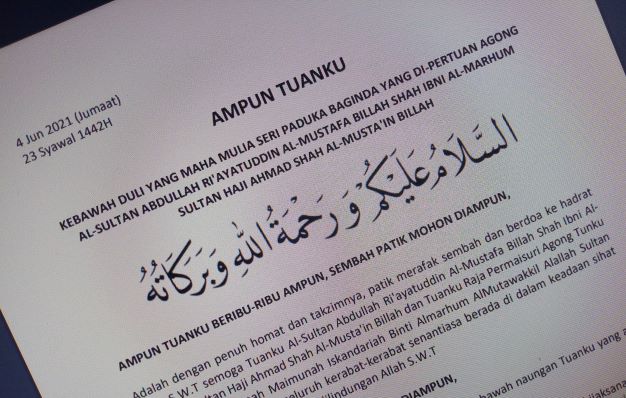 4 Jun 2021 (Jumaat)
23 Syawal 1442H
AMPUN TUANKU
KEBAWAH DULI YANG MAHA MULIA SERI PADUKA BAGINDA YANG DI-PERTUAN AGONG
AL-SULTAN ABDULLAH RI'AYATUDDIN AL-MUSTAFA BILLAH SHAH IBNI AL-MARHUM
SULTAN HAJI AHMAD SHAH AL-MUSTA'IN BILLAH
السَّلَامُ عَلَيْكُمْ وَرَحْمَةُ اللهِ وَبَرَكَاتُهُ
AMPUN TUANKU BERIBU-RIBU AMPUN, SEMBAH PATIK MOHON DIAMPUN,
Adalah dengan penuh homat dan takzimnya, patik merafak sembah dan berdoa ke hadrat
S.W.T semoga Tuanku Al-Sultan Abdullah Ri'ayatuddin Al-Mustafa Billah Shah Ibni Al-
Haji Ahmad Shah Al-Musta'in Billah dan Tuanku Raja Permaisuri Agong Tunku
Maimunah Iskandariah Binti Almarhum AlMutawakkil Alallah Sultan
kerabat-kerabat senantiasa berada di dalam keadaan sihat
Allah S.W.T
DIAMPUN,
naungan Tuanku yang